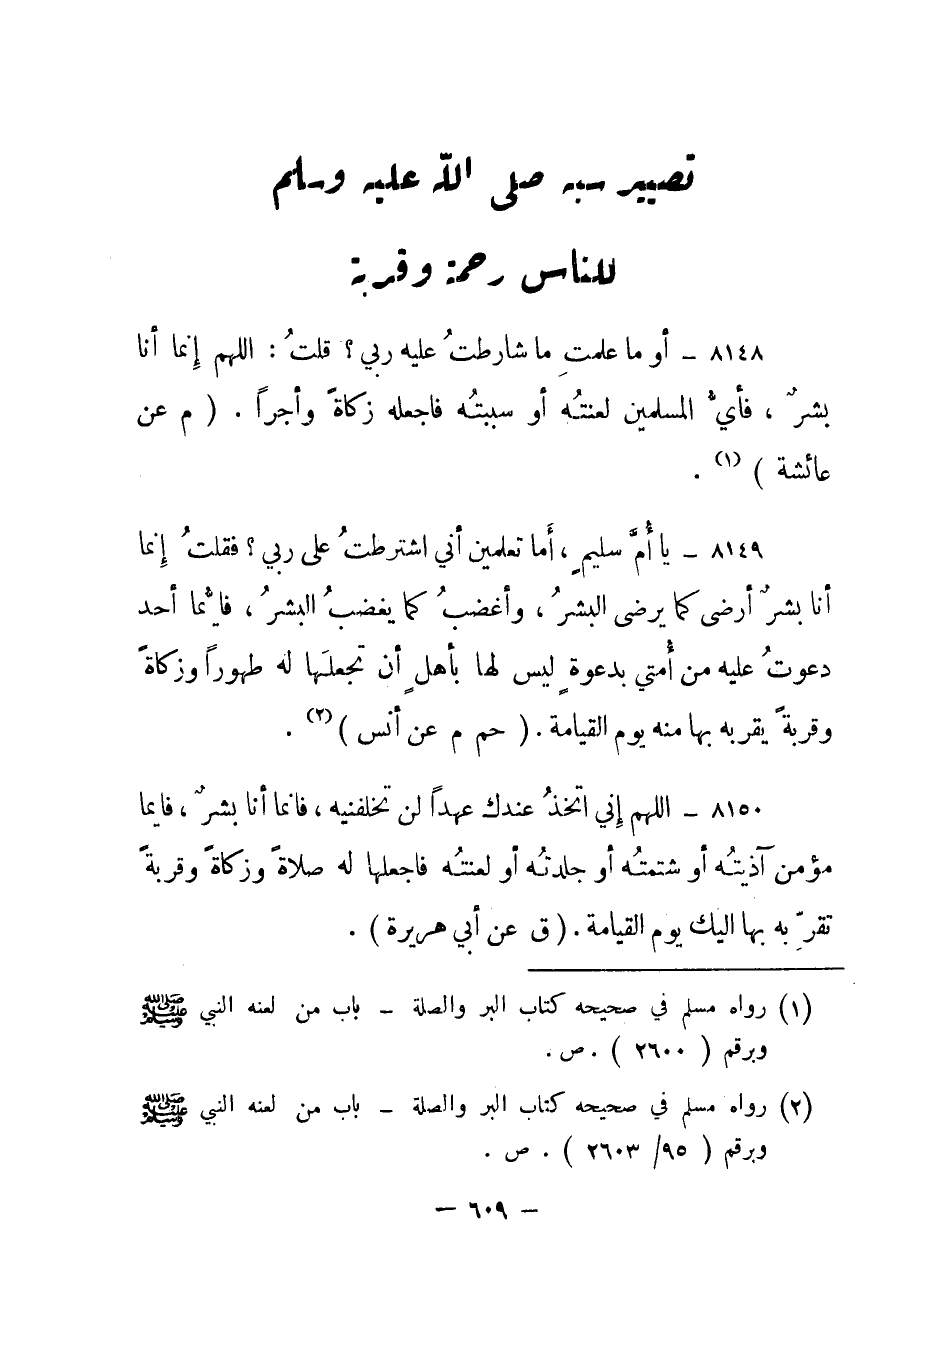 تصيير سبه صلى الله عليه وسلم
للناس رحمة وقربة
٨١٤٨ – أو ما علمتِ ما شارطتُ عليه ربي ؟ قلتُ : اللهم إنما أنا
بشرٌ ، فأيُّ المسلمين لعنتُه أو سببتُه فاجعله زكاةً وأجراً . ( م عن
عائشة ) (١) .
٨١٤٩ – يا أُمَّ سليمٍ ، أَما تعلمين أني اشترطتُ على ربي ؟ فقلتُ إنما
أنا بشرٌ أرضى كما يرضى البشرُ ، وأغضبُ كما يغضبُ البشرُ ، فايُّما أحد
دعوتُ عليه من أُمتي بدعوةٍ ليس لها بأهلٍ أن تجعلَها له طهوراً وزكاةً
وقربةً يقربه بها منه يوم القيامة . ( حم م عن أنس ) (٢) .
٨١٥٠ – اللهم إني اتخذُ عندك عهداً لن تخلفنيه ، فانما أنا بشرٌ ، فايما
مؤمن آذيتُه أو شتمتُه أو جلدتُه أو لعنتُه فاجعلها له صلاةً وزكاةً وقربةً
تقرِّبه بها اليك يوم القيامة . ( ق عن أبي هريرة ) .
(١) رواه مسلم في صحيحه كتاب البر والصلة – باب من لعنه النبي ﷺ
وبرقم ( ٢٦٠٠ ) . ص .
(٢) رواه مسلم في صحيحه كتاب البر والصلة – باب من لعنه النبي ﷺ
وبرقم ( ٩٥/ ٢٦٠٣ ) . ص .
– ٦٠٩ –